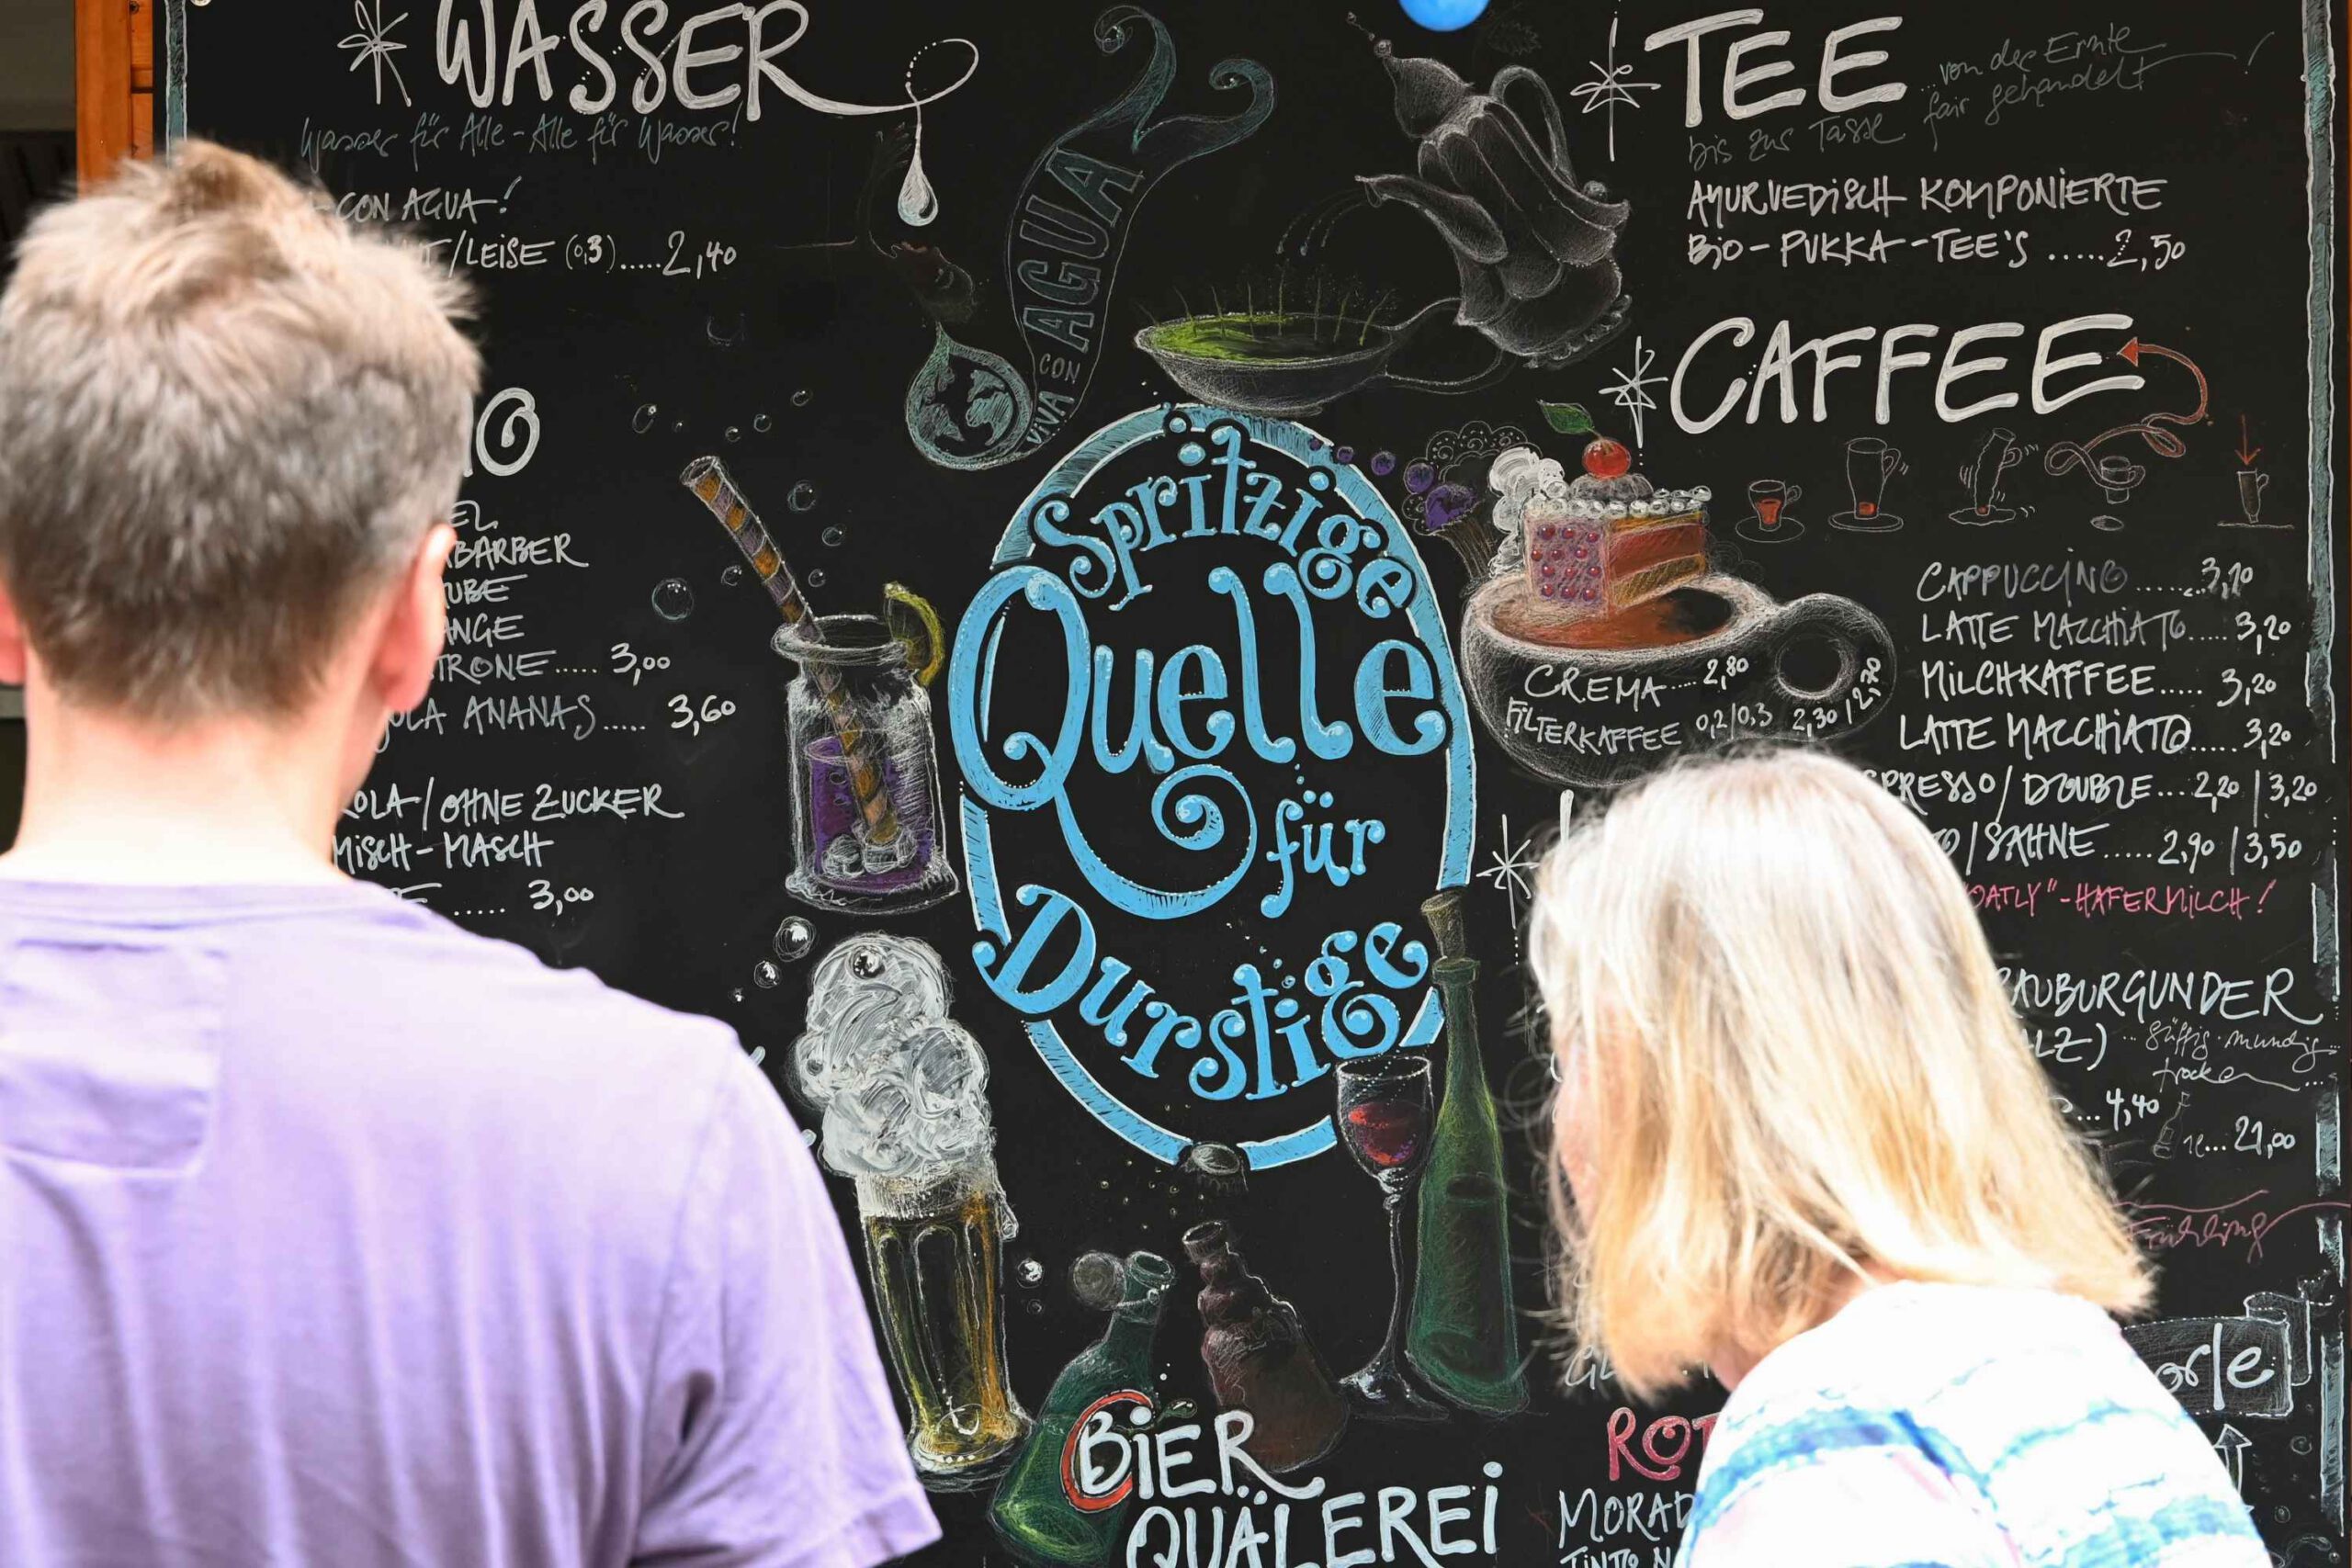 WASSER
Wasser für Alle - Alle für Wasser!
CON AGUA!
/LEISE (0,3).....2,40
BARBER
UBE
ANGE
TRONE..... 3,00
OLA ANANAS..... 3,60
OLA / OHNE ZUCKER
MISCH-MASCH
..... 3,00
VIVA CON AGUA
Spritzige
Quelle
für
Durstige
BIER
QUÄLEREI
TEE
...von der Ernte
bis zur Tasse fair gehandelt!
AYURVEDISCH KOMPONIERTE
BIO-PUKKA-TEE'S .....2,50
CAFFEE
CREMA.... 2,80
FILTERKAFFEE 0,2/0,3 2,30 / 2,70
CAPPUCCINO
LATTE MACCHIATO..... 3,20
MILCHKAFFEE..... 3,20
LATTE MACCHIATO..... 3,20
PRESSO / DOUBLE... 2,20 | 3,20
O / SAHNE ..... 2,90 | 3,50
OATLY"-HAFERMILCH!
AUBURGUNDER
LZ) ... süffig-mundig-
trocken...
... 4,40
... 21,00
Frühling
orle
ROT
MORAD
TINTO N